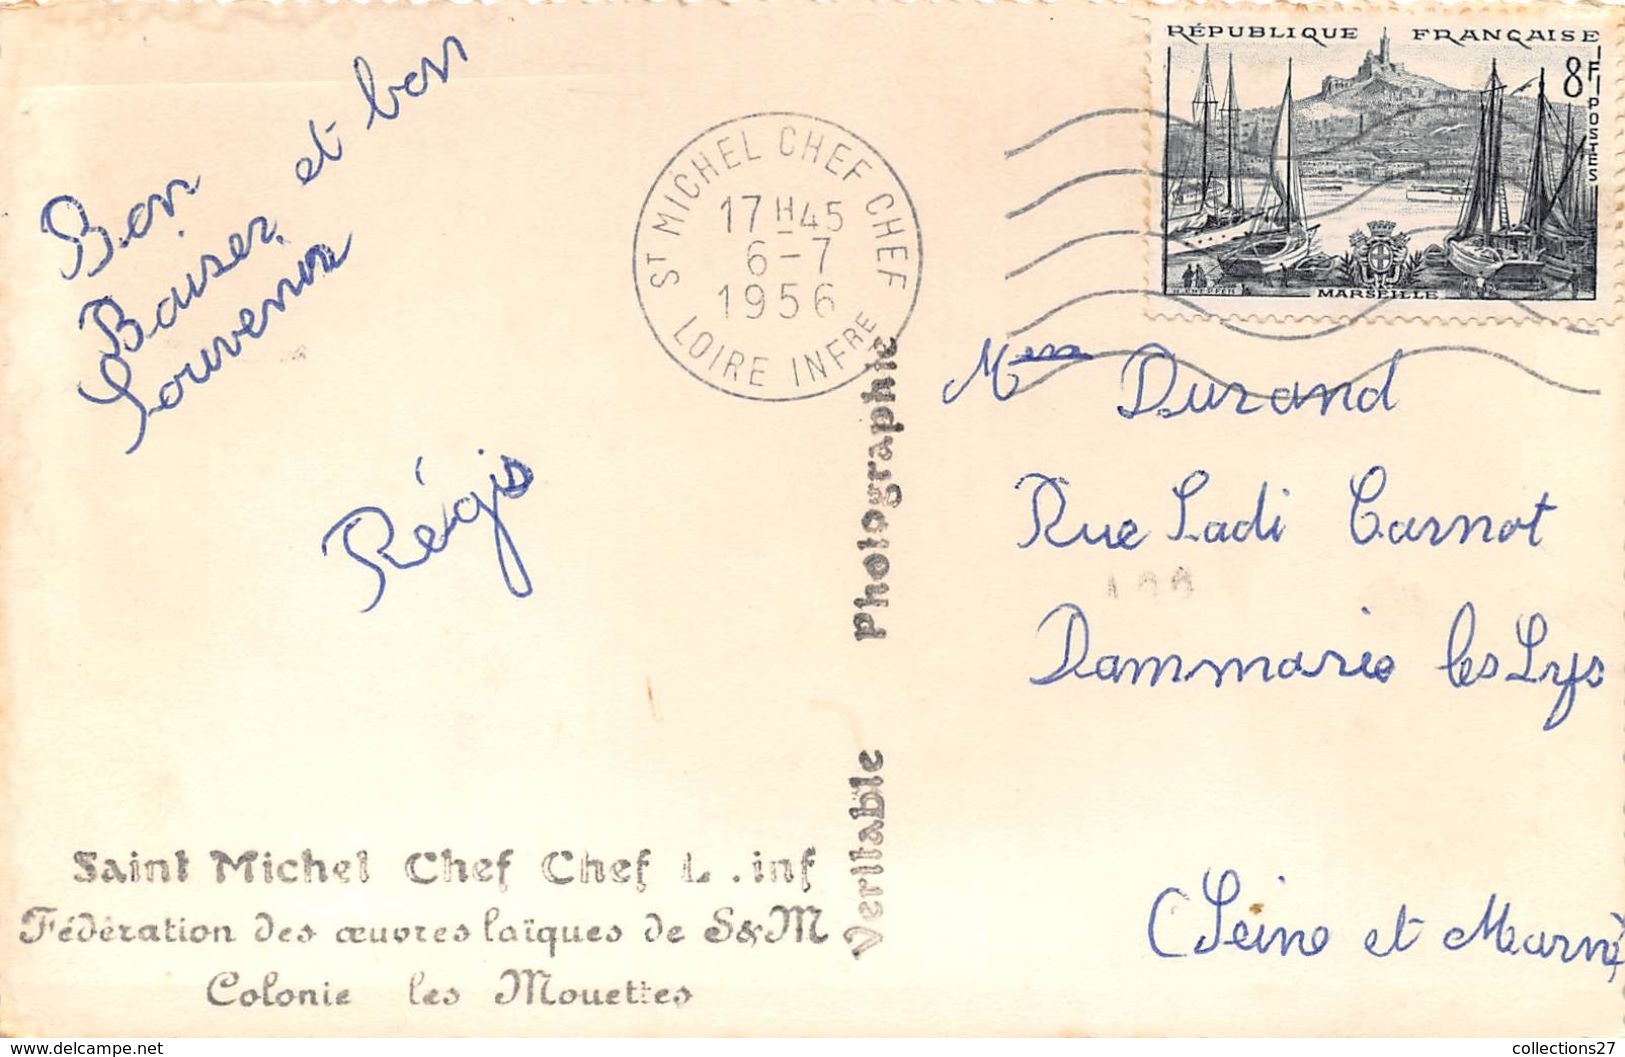 Bon
Baiser et bon
Souvenir
Régis
Saint Michel Chef Chef L. inf
Fédération des œuvres laïques de S&M
Colonie les Mouettes
Véritable Photographie
ST MICHEL CHEF CHEF
17 H 45
6-7
1956
LOIRE INFRE
RÉPUBLIQUE FRANÇAISE
8F
POSTES
MARSEILLE
Mme Durand
Rue Sadi Carnot
Dammarie les Lys
(Seine et Marne)
www.delcampe.net
collections27